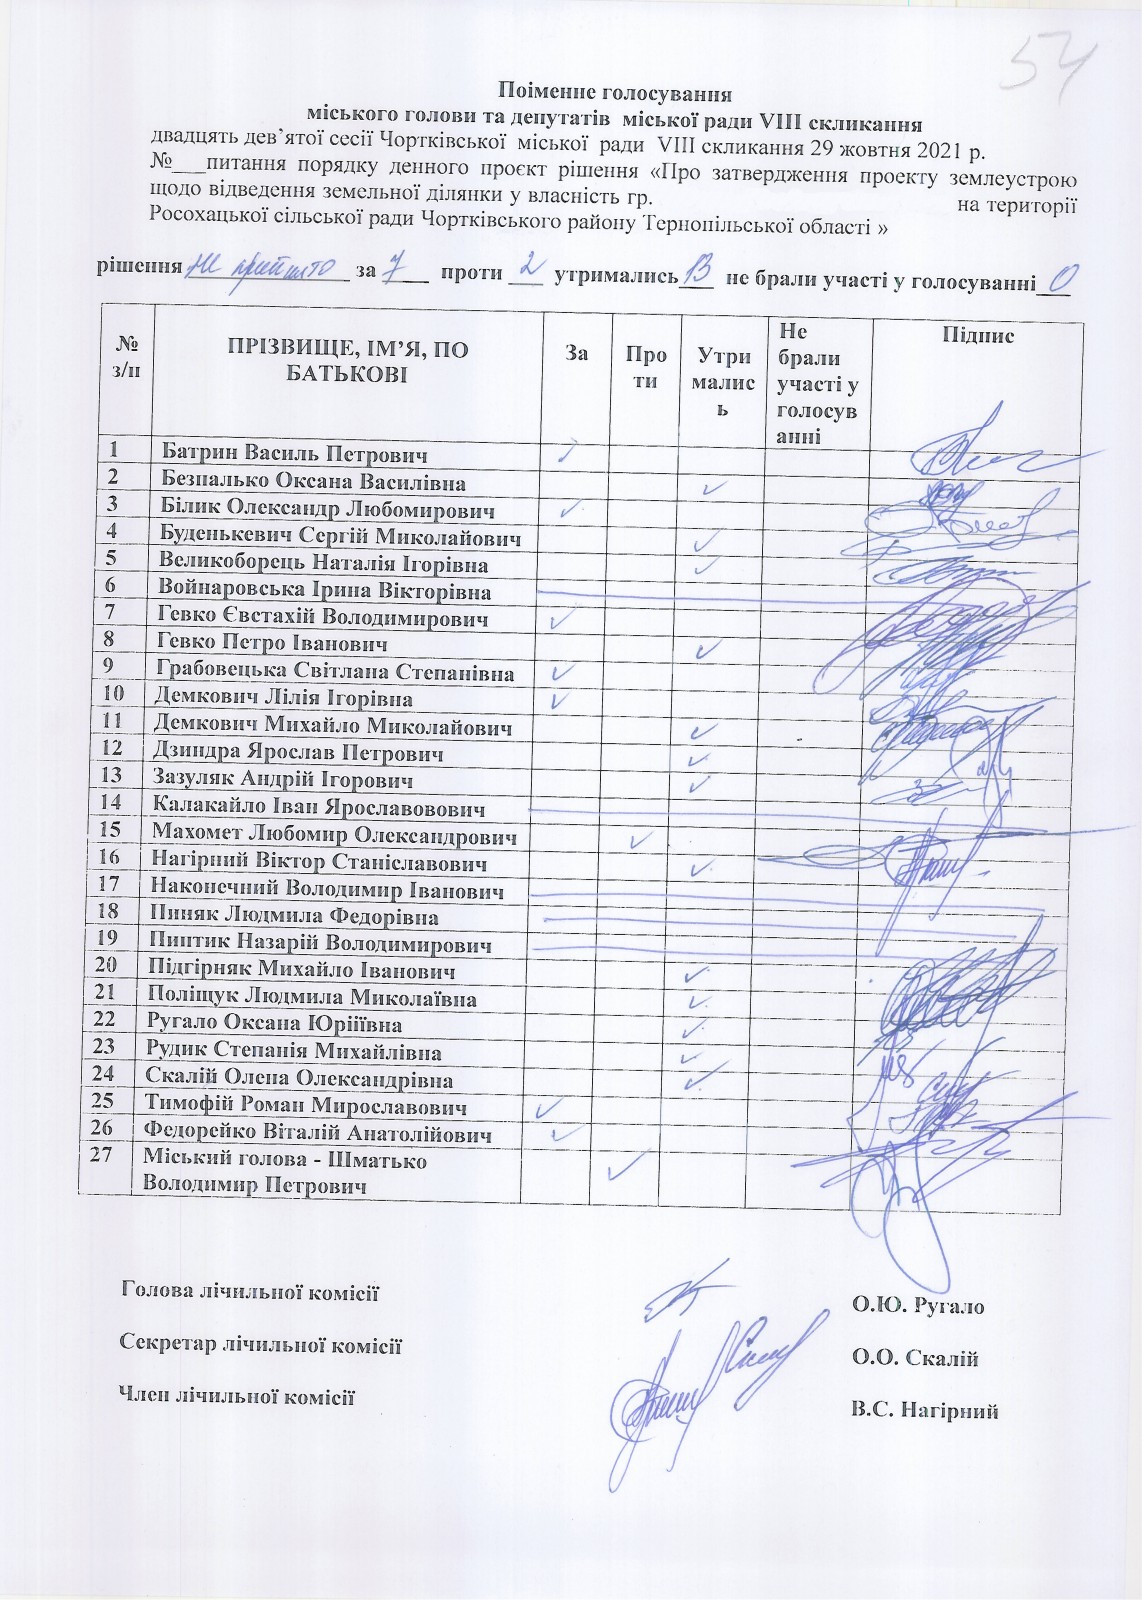 54
Поіменне голосування
міського голови та депутатів міської ради VIII скликання
двадцять дев’ятої сесії Чортківської міської ради VIII скликання 29 жовтня 2021 р.
№___питання порядку денного проєкт рішення «Про затвердження проекту землеустрою
щодо відведення земельної ділянки у власність гр. на території
Росохацької сільської ради Чортківського району Тернопільської області »
рішення не прийнято за 7 проти 2 утримались 13 не брали участі у голосуванні 0
№ з/п ПРІЗВИЩЕ, ІМ’Я, ПО БАТЬКОВІ За Про ти Утри малис ь Не брали участі у голосув анні Підпис
1 Батрин Василь Петрович
2 Безпалько Оксана Василівна ✓
3 Білик Олександр Любомирович ✓
4 Буденькевич Сергій Миколайович ✓
5 Великоборець Наталія Ігорівна ✓
6 Войнаровська Ірина Вікторівна
7 Гевко Євстахій Володимирович ✓
8 Гевко Петро Іванович ✓
9 Грабовецька Світлана Степанівна ✓
10 Демкович Лілія Ігорівна ✓
11 Демкович Михайло Миколайович ✓
12 Дзиндра Ярослав Петрович ✓
13 Зазуляк Андрій Ігорович ✓
14 Калакайло Іван Ярославовович
15 Махомет Любомир Олександрович ✓
16 Нагірний Віктор Станіславович ✓
17 Наконечний Володимир Іванович
18 Пиняк Людмила Федорівна
19 Пиптик Назарій Володимирович
20 Підгірняк Михайло Іванович ✓
21 Поліщук Людмила Миколаївна ✓
22 Ругало Оксана Юріїівна ✓
23 Рудик Степанія Михайлівна ✓
24 Скалій Олена Олександрівна ✓
25 Тимофій Роман Мирославович ✓
26 Федорейко Віталій Анатолійович ✓
27 Міський голова - Шматько Володимир Петрович ✓
Голова лічильної комісії О.Ю. Ругало
Секретар лічильної комісії О.О. Скалій
Член лічильної комісії В.С. Нагірний